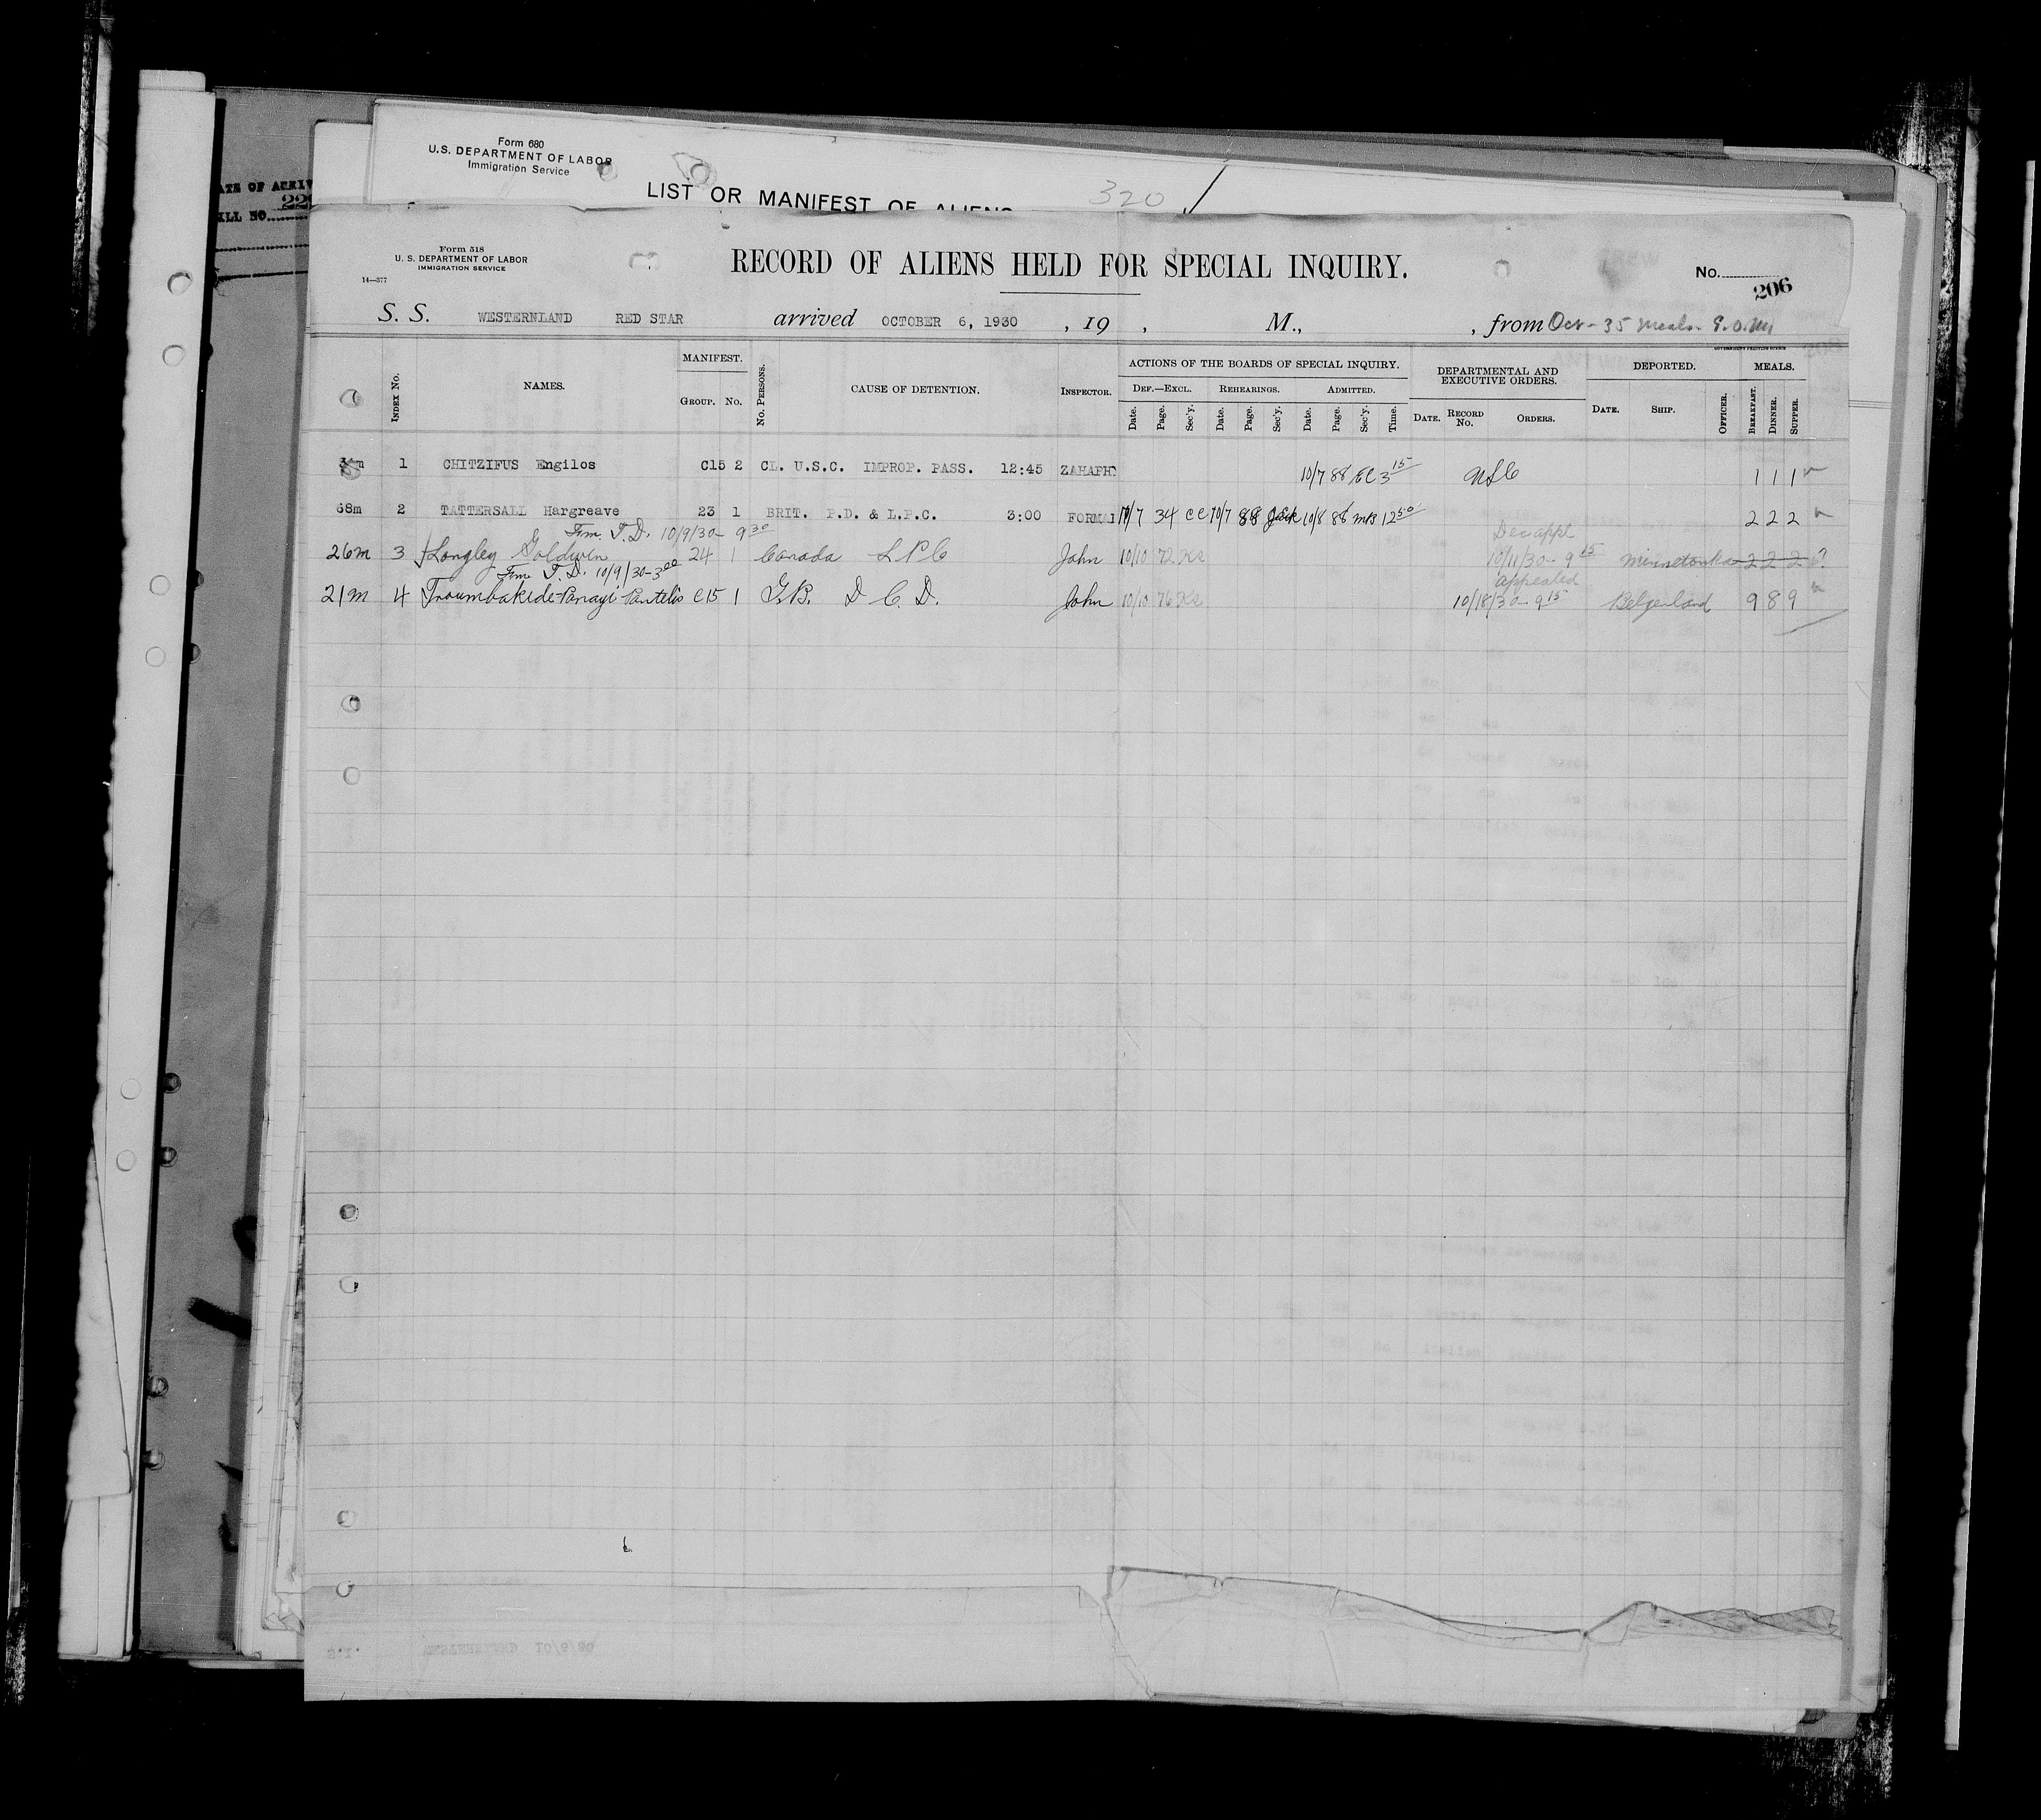 Form 680
U.S. DEPARTMENT OF LABOR
Immigration Service
LIST OR MANIFEST OF ALIENS
320
Form 518
U. S. DEPARTMENT OF LABOR
IMMIGRATION SERVICE
14—377
RECORD OF ALIENS HELD FOR SPECIAL INQUIRY.
No. 206
S. S. WESTERNLAND RED STAR arrived OCTOBER 6, 1930 , 19 , M., , from Oct - 35 meals
GOVERNMENT PRINTING OFFICE
INDEX NO. NAMES. MANIFEST. GROUP. NO. NO. PERSONS. CAUSE OF DETENTION. INSPECTOR. ACTIONS OF THE BOARDS OF SPECIAL INQUIRY. DEPARTMENTAL AND EXECUTIVE ORDERS. DEPORTED. MEALS.
DEF.—EXCL. REHEARINGS. ADMITTED.
Date. Page. Sec'y. Date. Page. Sec'y. Date. Page. Sec'y. Time. DATE. RECORD NO. ORDERS. DATE. SHIP. OFFICER. BREAKFAST. DINNER. SUPPER.
1 CHITZIFUS Engilos C15 2 CL. U.S.C. IMPROP. PASS. 12:45 10/7 88 EC 3 15 1 1 1
68m 2 TATTERSALL Hargreave 23 1 BRIT. P.D. & L.P.C. 3:00 10/7 34 CC 10/7 88 10/8 88 MB 12 50 2 2 2
Fm. T.D. 10/9/30- 9 30 Dec appl
26m 3 Longley Goldwin 24 1 Canada L P C John 10/10 72 Ks 10/11/30 - 9 15 Minnetonka 2 2 2 ?
Fm T.D. 10/9/30-3 00 appealed
21m 4 Troumbakide Panayi Pantelis C15 1 G.B. D C. D. John 10/10 76 Ks 10/18/30 - 9 15 Belgenland 9 8 9